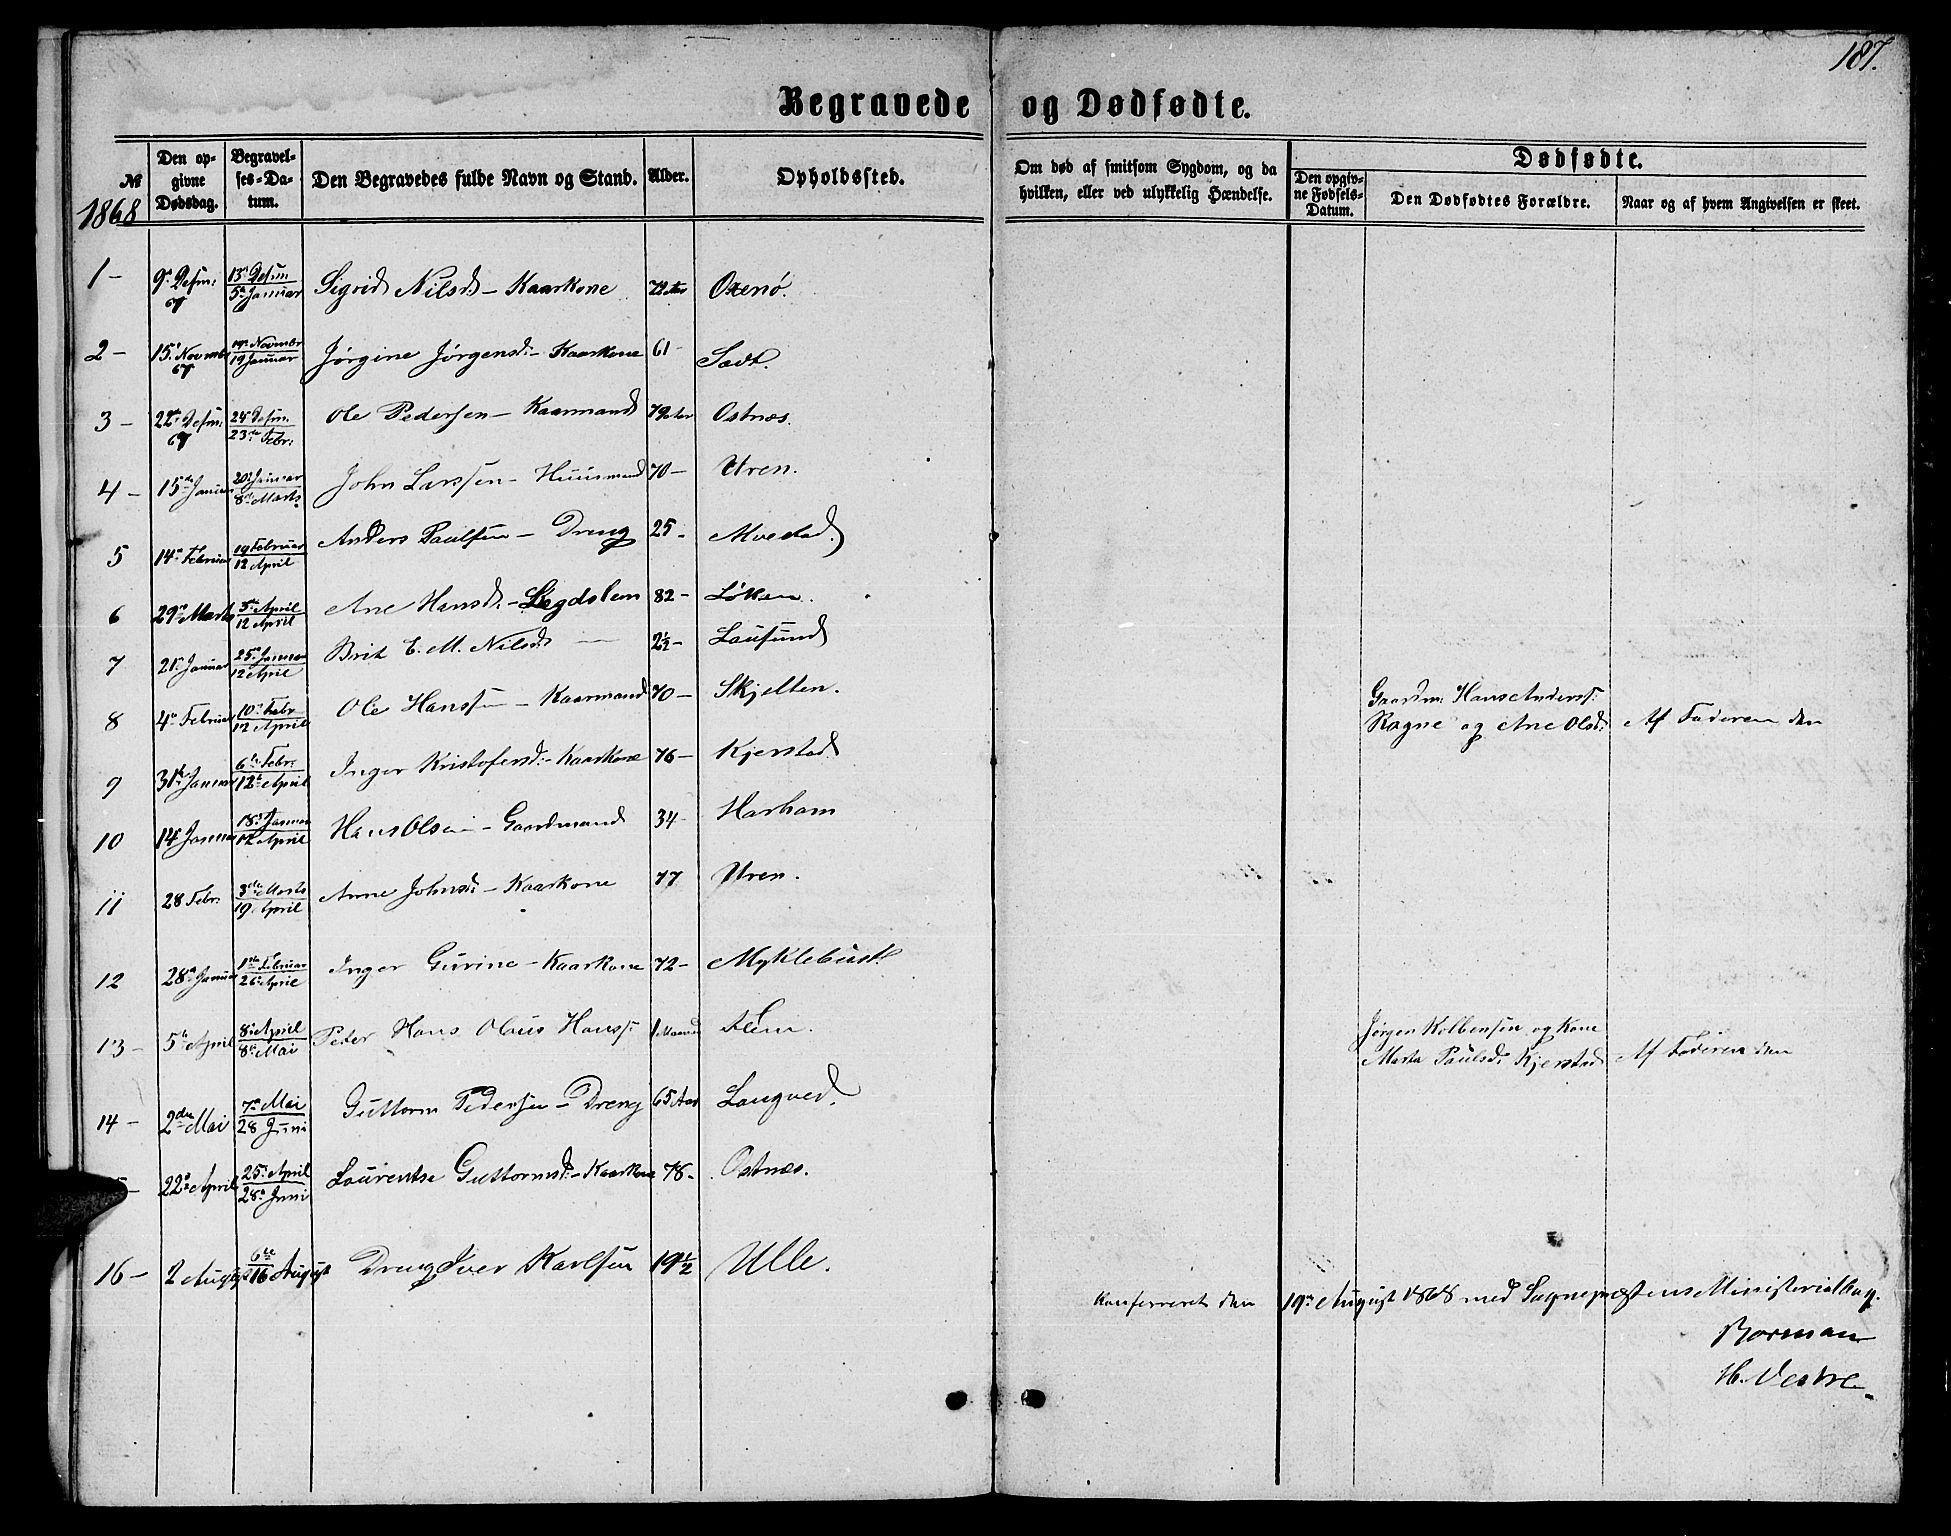 187.
Begravede og Dødfødte.
№
Den opgivne Dødsdag.
Begravelses-Datum.
Den Begravedes fulde Navn og Stand.
Alder.
Opholdssted.
Om død af smitsom Sygdom, og da hvilken, eller ved ulykkelig Hændelse.
Dødfødte.
Den opgivne Fødsels-Datum.
Den Dødfødtes Forældre.
Naar og af hvem Angivelsen er skeet.
1868
1 - 9de Desm: 67 13de Desm 5te Januar Sigrid Nilsd: - Kaarkone 72 Oxenø.
2 - 15de Novmbr 67 19de Novmbr 19 Januar Jørgine Jørgensd: - Kaarkone 61 -
3 - 22de Desm: 67 24de Desm. 23de Febr: Ole Pedersen - Kaarmand 79 Ostnæs.
4 - 15de Januar 20de Januar 8de Marts John Larssen - Huusmand 70 - Uren.
5 14de Februar 19 Februar 12 April Anders Paulsen - Dreng 25 - Moestad.
6 29de Marts 5te April 12 April Ane Hansd: - Lægdslem 82 - Løken.
7 21de Januar 25de Januar 12 April Brit E. M. Nilsd: 2½ - Lausund
8 4de Februar 10de Febr 12 April Ole Hanssen - Kaarmand 70 - Skjelten.
Gaardm. Hans Anderss:
Rogne og Ane Olsd: Af Faderen den
9 31te Januar 6te Febr: 12te April Inger Kristofersd: - Kaarkone 76 - Kjerstad
10 14de Januar 18de Januar 12 April Hans Olsen - Gaardmand 34 - Harham
11 28 Febr: 3die Marts 19 April Anne Johnsd: - Kaarkone 77 Uren.
12 28de Januar 1ste Februar 26de April Inger Gurine - Kaarkone 72 - Myklebust
13 - 5te April 8de April 8de Mai Peter Hans Olaus Hanss: 1 Maaned Flem.
Jørgen Kolbensen og Kone
Marta Paulsd: Kjerstad Af Faderen den
14 - 2den Mai 7de Mai 28 Juni Guttorm Pedersen - Dreng 65 Aar Longved.
5 - 22de April 25de April 28de Juni Laurentse Guttormsd: - Kaarkone 78 - Ostnæs.
16 - 2 August 6te 16 August Dreng Iver Karlsen 19½ Ulle.
Konfereret den 19de August 1868 med Sognepræstens Ministerialbog.
H. Vestre